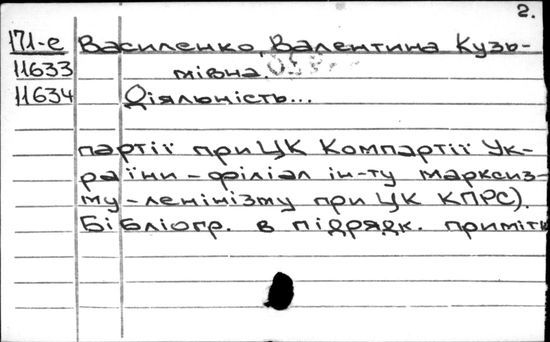 2.
171-е Василенко, Валентина Кузь-
11633 мівна.
11634 Діяльність...
партії при ЦК Компартії Ук-
раїни-філіал ін-ту марксиз-
му-ленінізму при ЦК КПРС).
Бібліогр. в підрядк. приміт